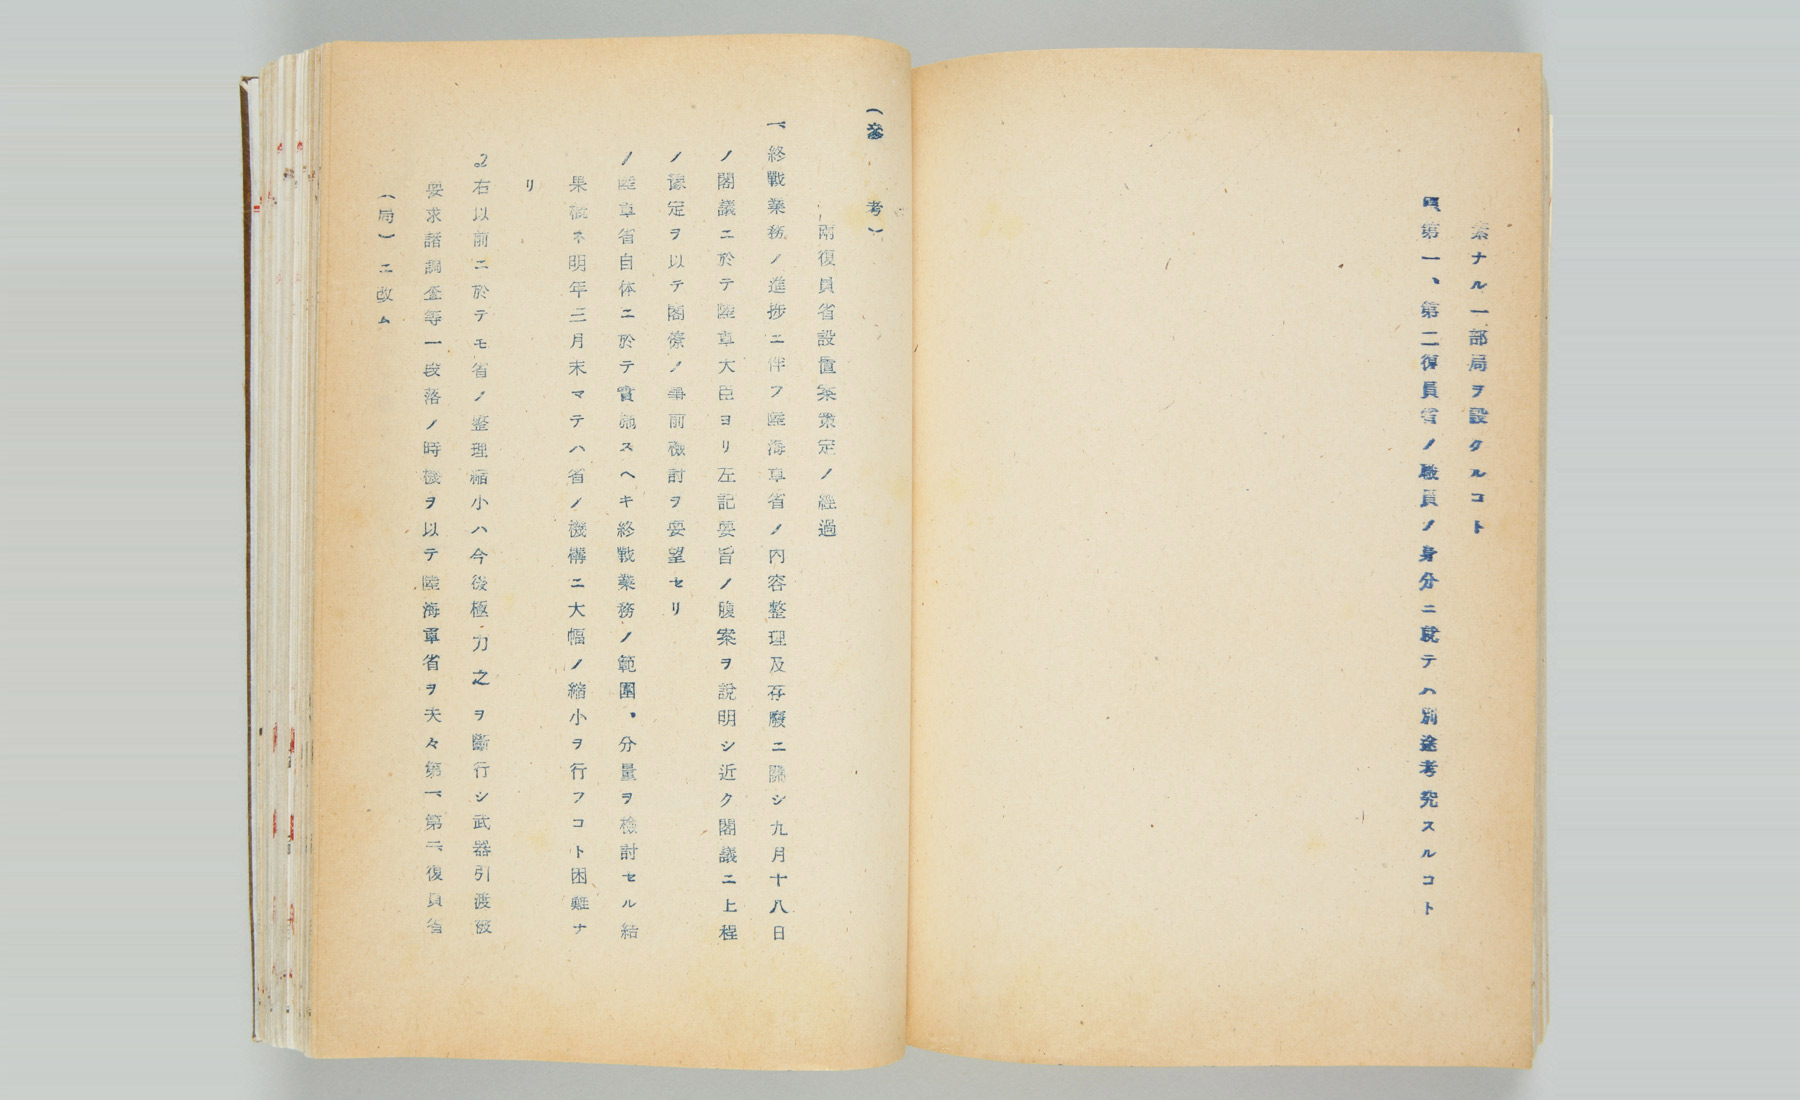 素ナル一部局ヲ設クルコト
四、第一、第二復員省ノ職員ノ身分ニ就テハ別途考究スルコト
(参考)
両復員省設置案策定ノ経過
一、終戰業務ノ進捗ニ伴フ陸海軍省ノ内容整理及存廢ニ關シ九月十八日
ノ閣議ニ於テ陸軍大臣ヨリ左記要旨ノ腹案ヲ説明シ近ク閣議ニ上程
ノ豫定ヲ以テ閣僚ノ事前檢討ヲ要望セリ
ノ陸軍省自体ニ於テ實施スヘキ終戰業務ノ範圍、分量ヲ檢討セル結
果概ネ明年三月末マテハ省ノ機構ニ大幅ノ縮小ヲ行フコト困難ナ
リ
2.右以前ニ於テモ省ノ整理縮小ハ今後極力之ヲ斷行シ武器引渡被
要求諸調査等一段落ノ時機ヲ以テ陸海軍省ヲ夫々第一、第二、復員省
(局)ニ改ム